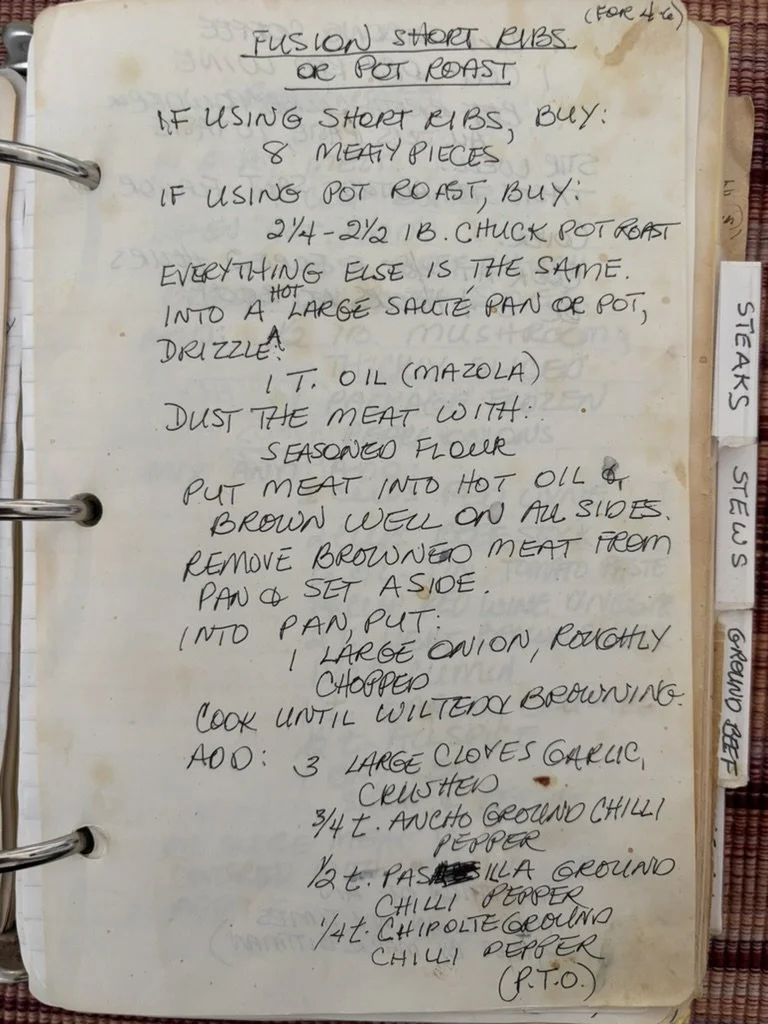 (FOR 4-6)
FUSION SHORT RIBS
OR POT ROAST
IF USING SHORT RIBS, BUY:
8 MEATY PIECES
IF USING POT ROAST, BUY:
2 1/4 - 2 1/2 lB. CHUCK POT ROAST
EVERYTHING ELSE IS THE SAME.
INTO A HOT LARGE SAUTÉ PAN OR POT,
DRIZZLE:
1 T. OIL (MAZOLA)
DUST THE MEAT WITH:
SEASONED FLOUR
PUT MEAT INTO HOT OIL &
BROWN WELL ON ALL SIDES.
REMOVE BROWNED MEAT FROM
PAN & SET ASIDE.
INTO PAN, PUT:
1 LARGE ONION, ROUGHLY
CHOPPED
COOK UNTIL WILTED & BROWNING.
ADD: 3 LARGE CLOVES GARLIC,
CRUSHED
3/4 t. ANCHO GROUND CHILLI
PEPPER
1/2 t. PASILLA GROUND
CHILLI PEPPER
1/4 t. CHIPOLTE GROUND
CHILLI PEPPER
(P.T.O.)
STEAKS
STEWS
GROUND BEEF